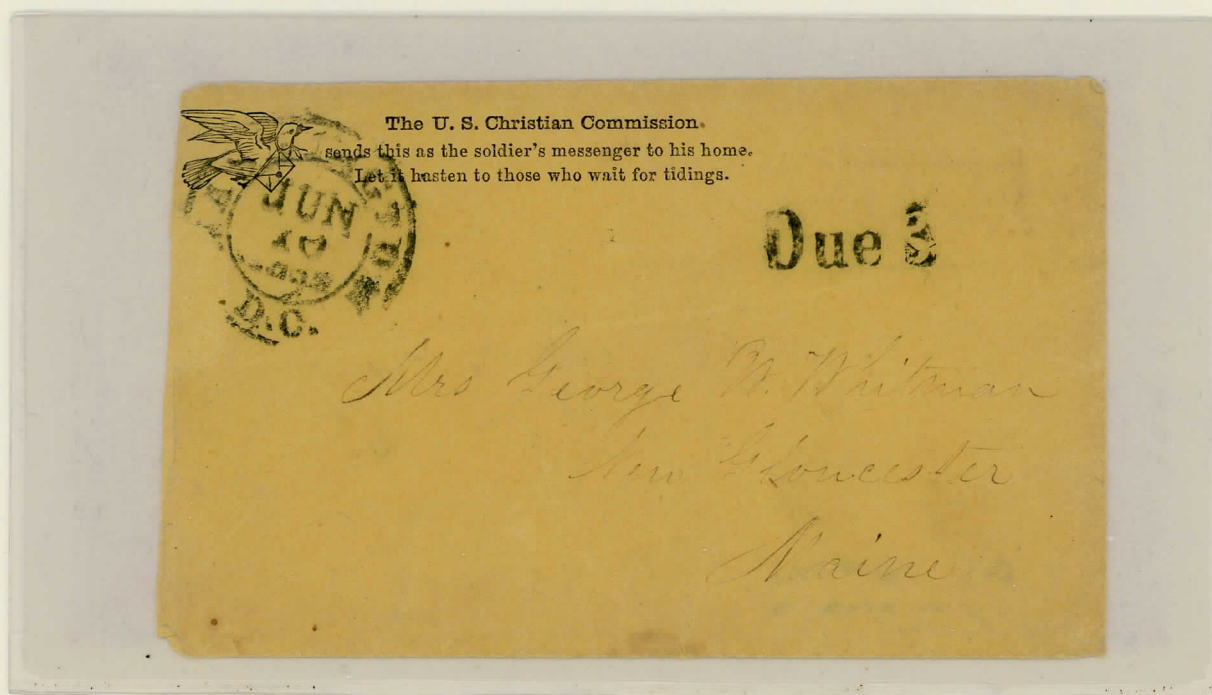 The U. S. Christian Commission.
sends this as the soldier's messenger to his home.
Let it hasten to those who wait for tidings.
WASHINGTON
JUN
D.C.
Due 3
Mrs George W. Whitman
New Gloucester
Maine